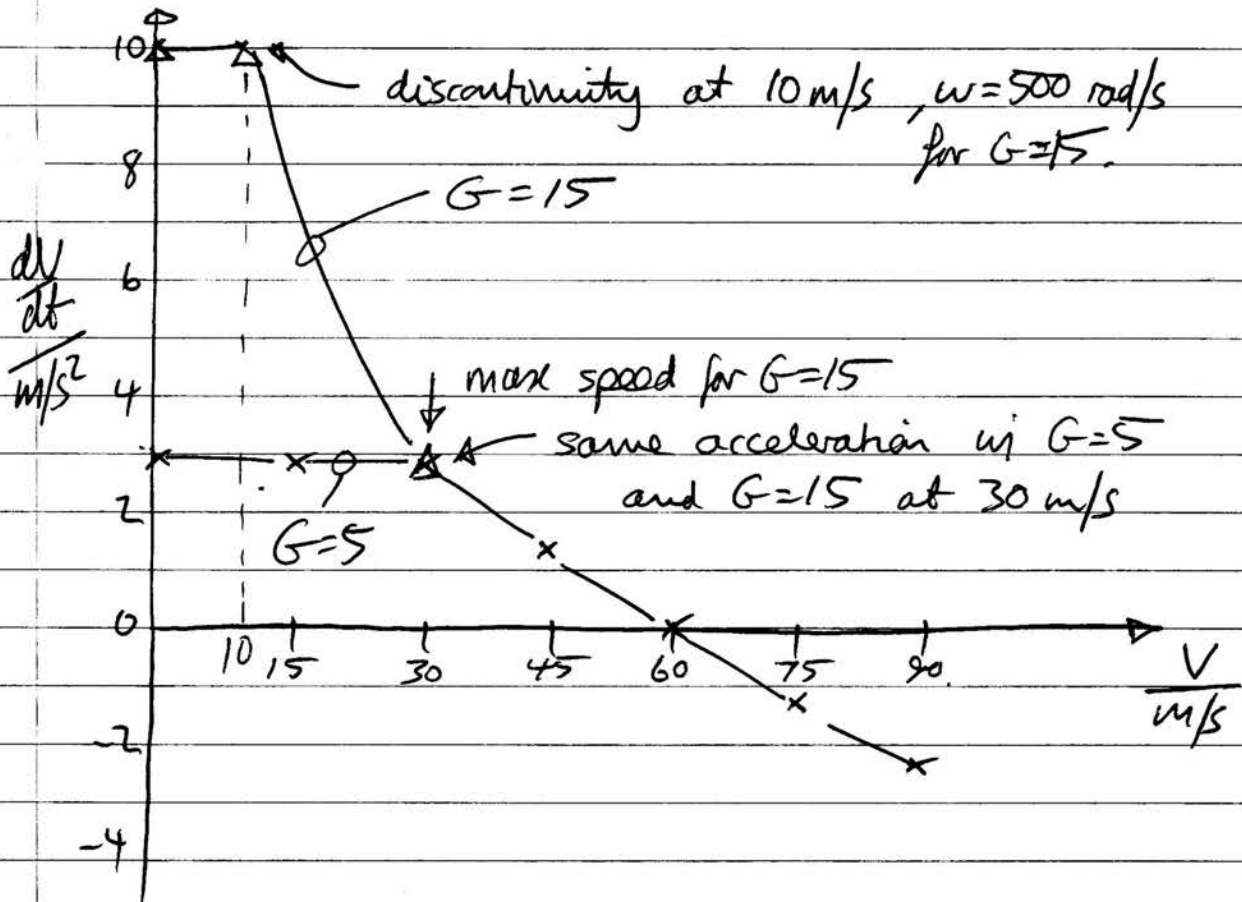 10
discontinuity at 10 m/s, w=500 rad/s
for G=15.
8
G=15
dV
dt
m/s²
6
4
max speed for G=15
same acceleration in G=5
and G=15 at 30 m/s
2
G=5
0
10 15 30 45 60 75 90
V
m/s
-2
-4